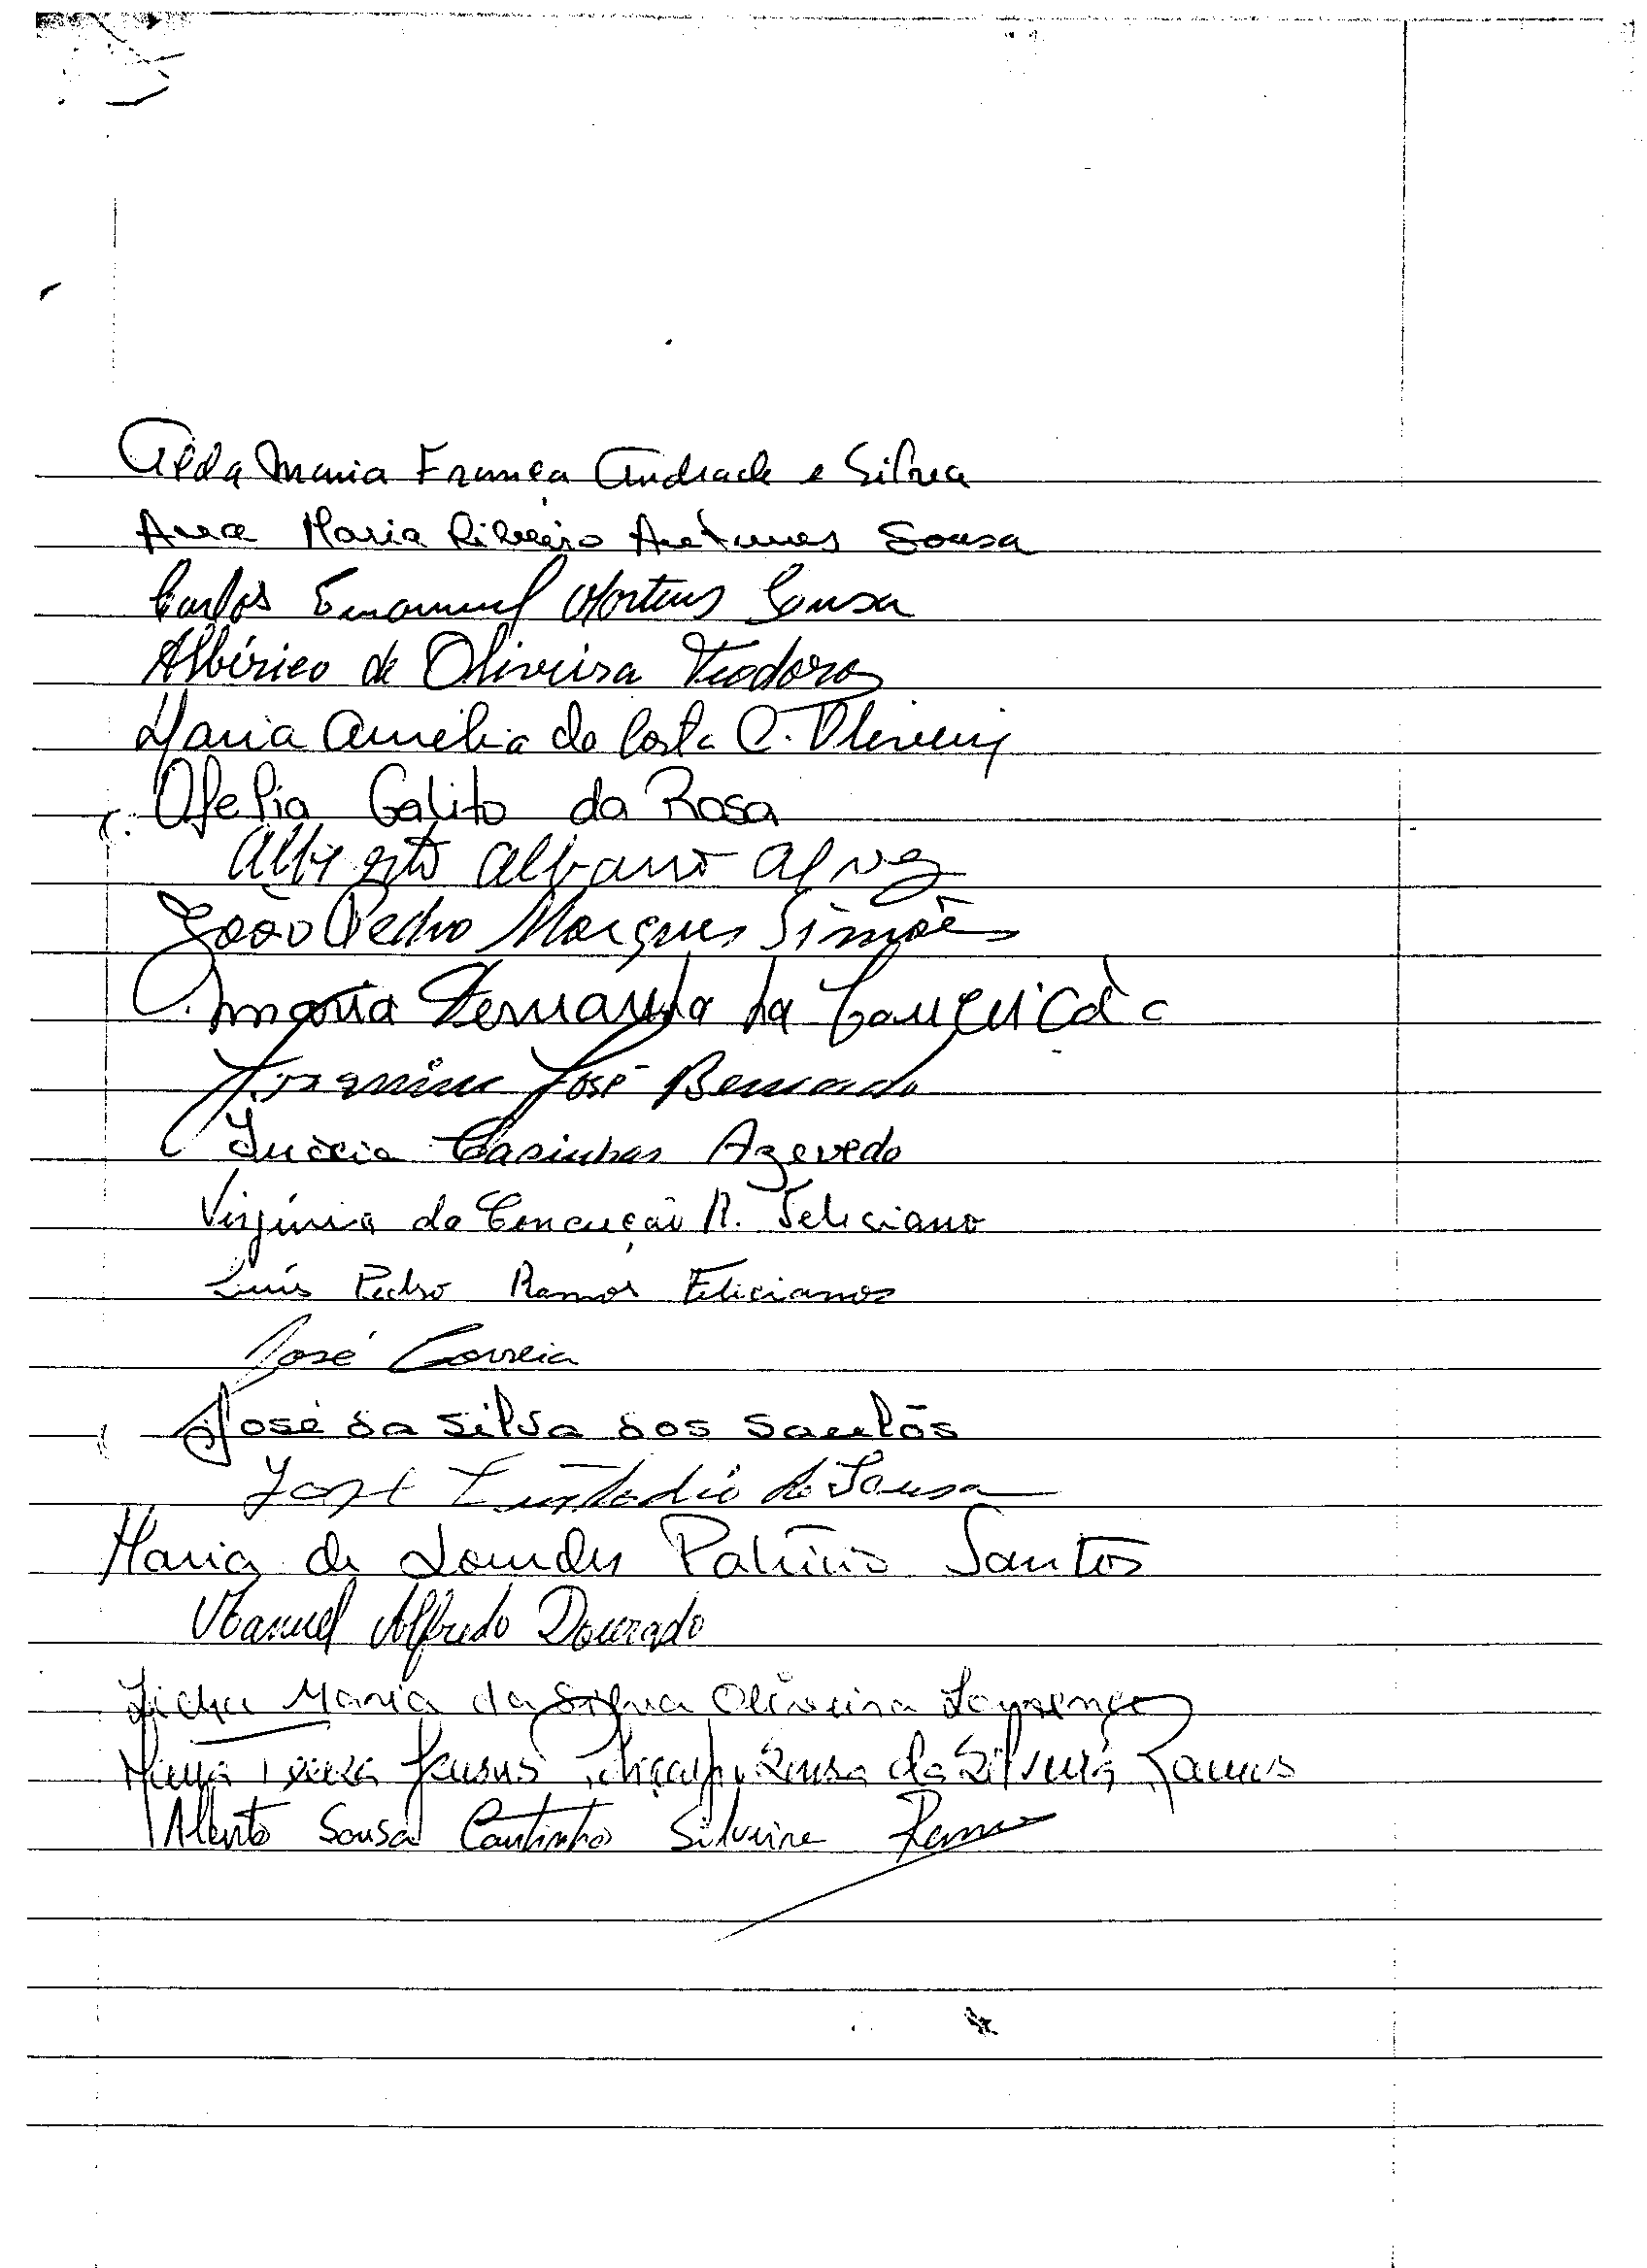 Alda Maria França Andrade e Silva
Ana Maria Ribeiro Antunes Sousa
Carlos Emanuel Martins Sousa
Albérico de Oliveira Teodoro
Maria Amélia da Costa C. Oliveira
Ofelia Galito da Rosa
Alberto Albano Alves
João Pedro Marques Simões
Maria Fernanda da Conceição
José Bernardo
Inácia Casinhas Azevedo
Virgínia da Conceição R. Feliciano
Luís Pedro Ramos Feliciano
José Correia
José da Silva dos Santos
José Custodio de Sousa
Maria de Lourdes Patrício Santos
Manuel Alfredo Dourado
Maria da Silva Oliveira Lourenço
Sousa da Silveira Ramos
Alberto Sousa Coutinho Silveira Ramos